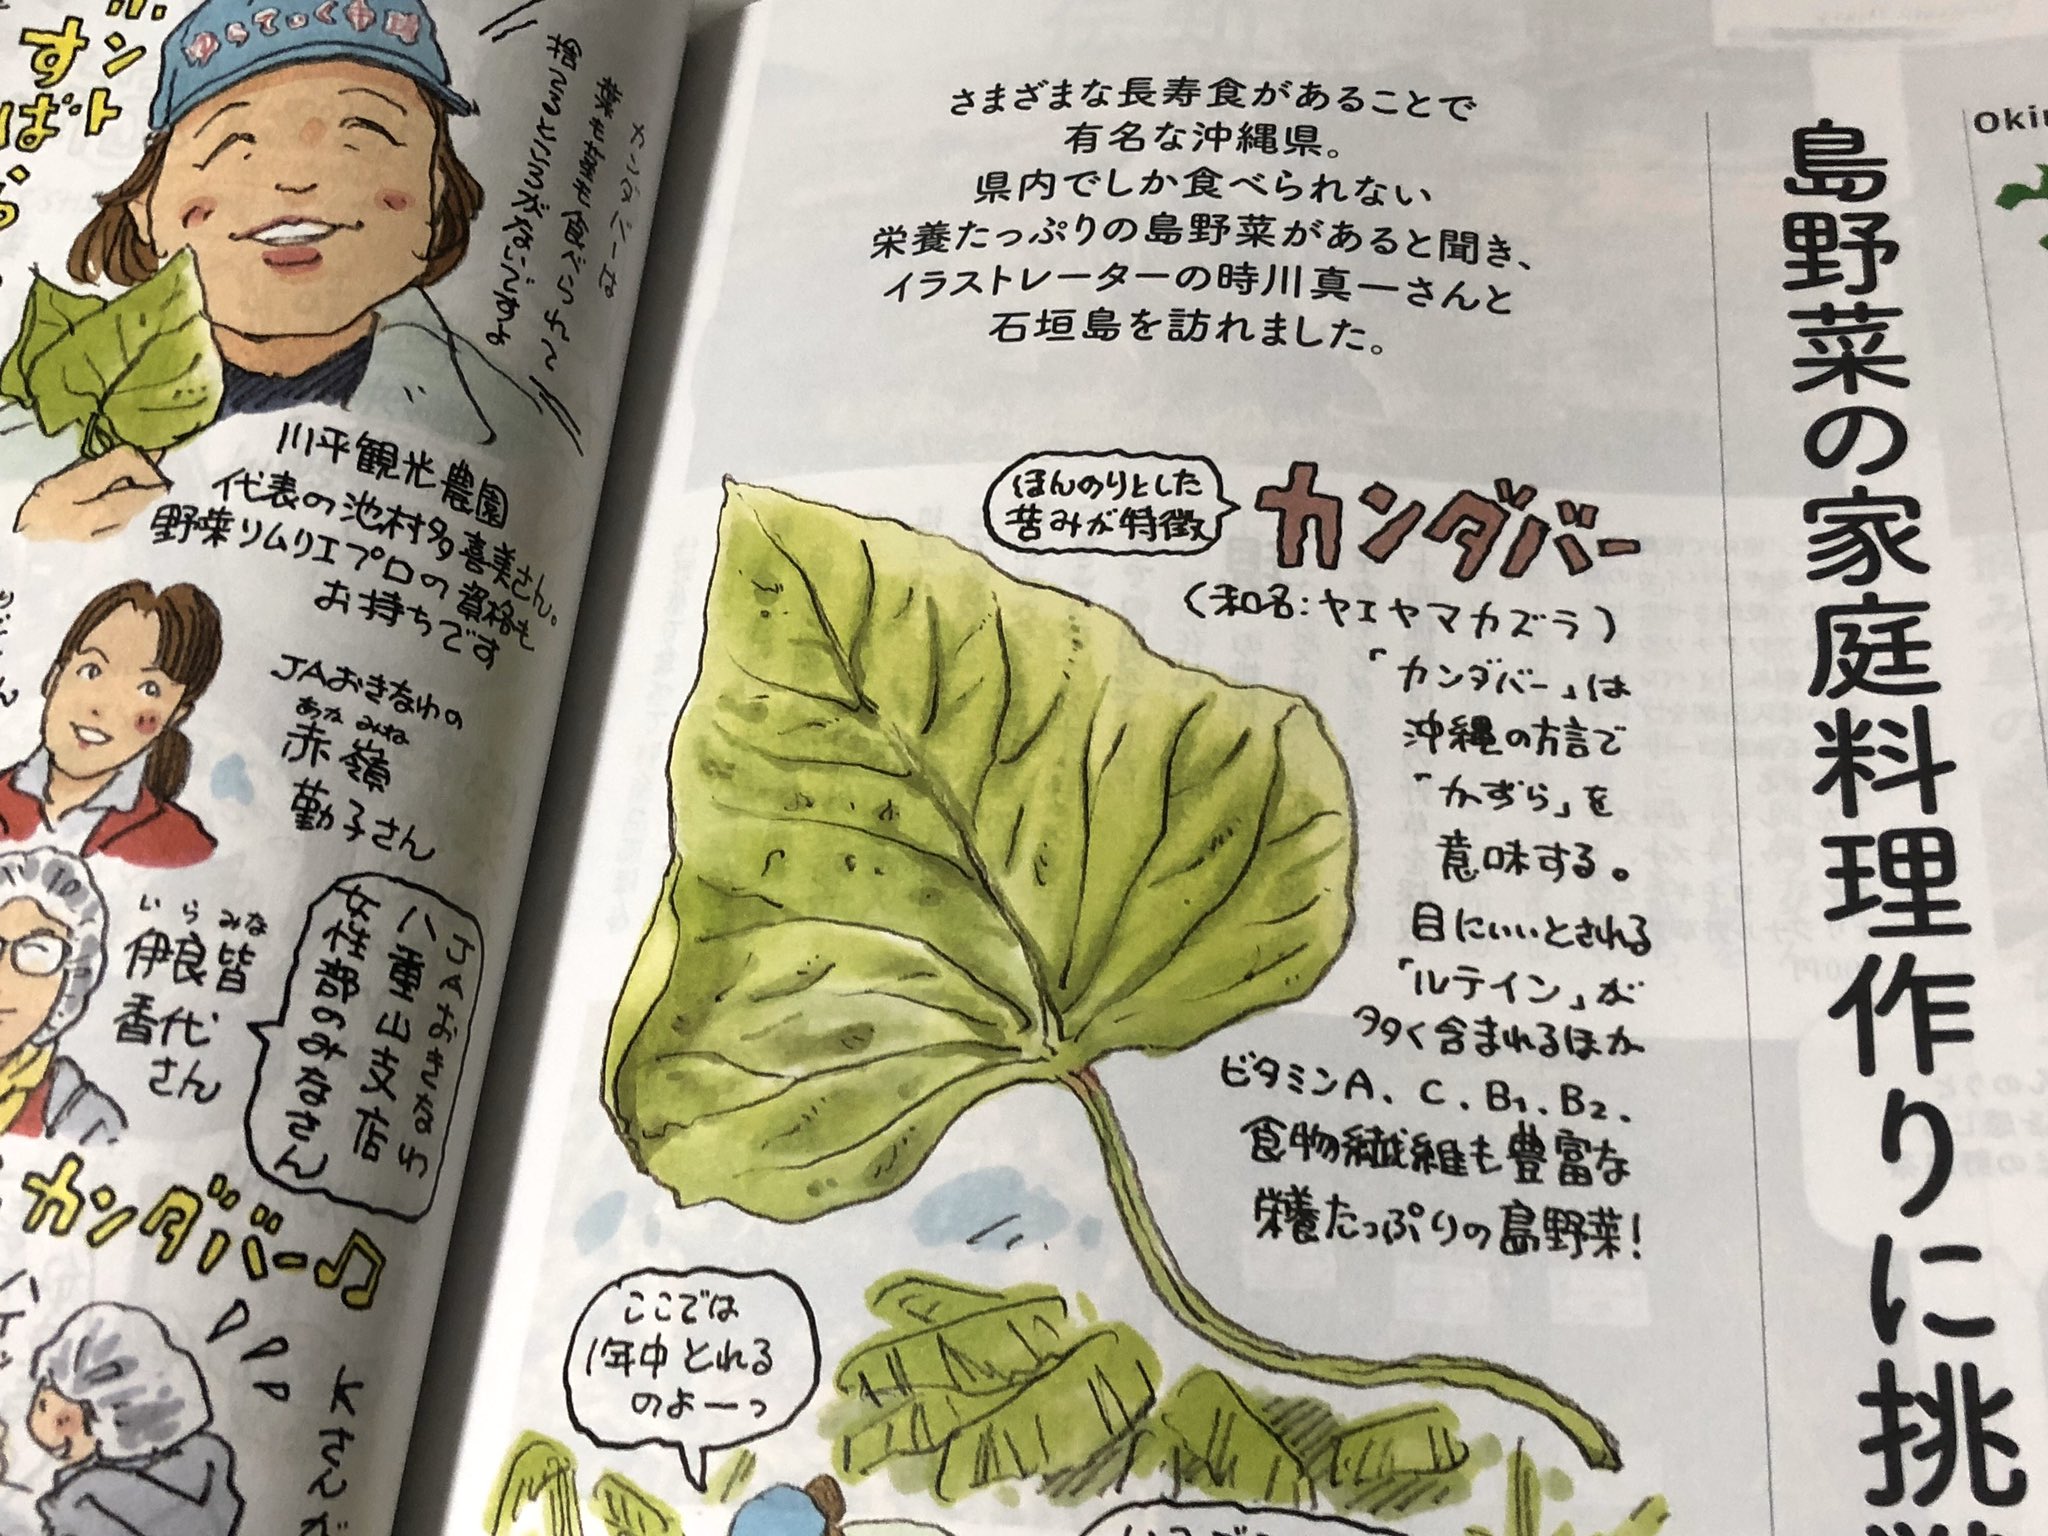 さまざまな長寿食があることで
有名な沖縄県。
県内でしか食べられない
栄養たっぷりの島野菜があると聞き、
イラストレーターの時川真一さんと
石垣島を訪れました。
島野菜の家庭料理作りに挑
ほんのりとした
苦みが特徴
カンダバー
(和名:ヤエヤマカズラ)
「カンダバー」は
沖縄の方言で
「かずら」を
意味する。
目にいいとされる
「ルテイン」が
多く含まれるほか
ビタミンA、C、B1、B2、
食物繊維も豊富な
栄養たっぷりの島野菜!
ここでは
1年中とれる
のよーっ
カンダバーは
葉も茎も食べらいよ〜
捨てるところがほとんどないのよ
川平観光農園
代表の池村多喜美さん。
野菜ソムリエプロの資格も
お持ちです
JAおきなわの
あかみね
赤嶺
勤子さん
いらみな
伊良皆
香代
さん
JAおきなわ
八重山支店
女性部のみなさん
カンダバー♫
Kさんが